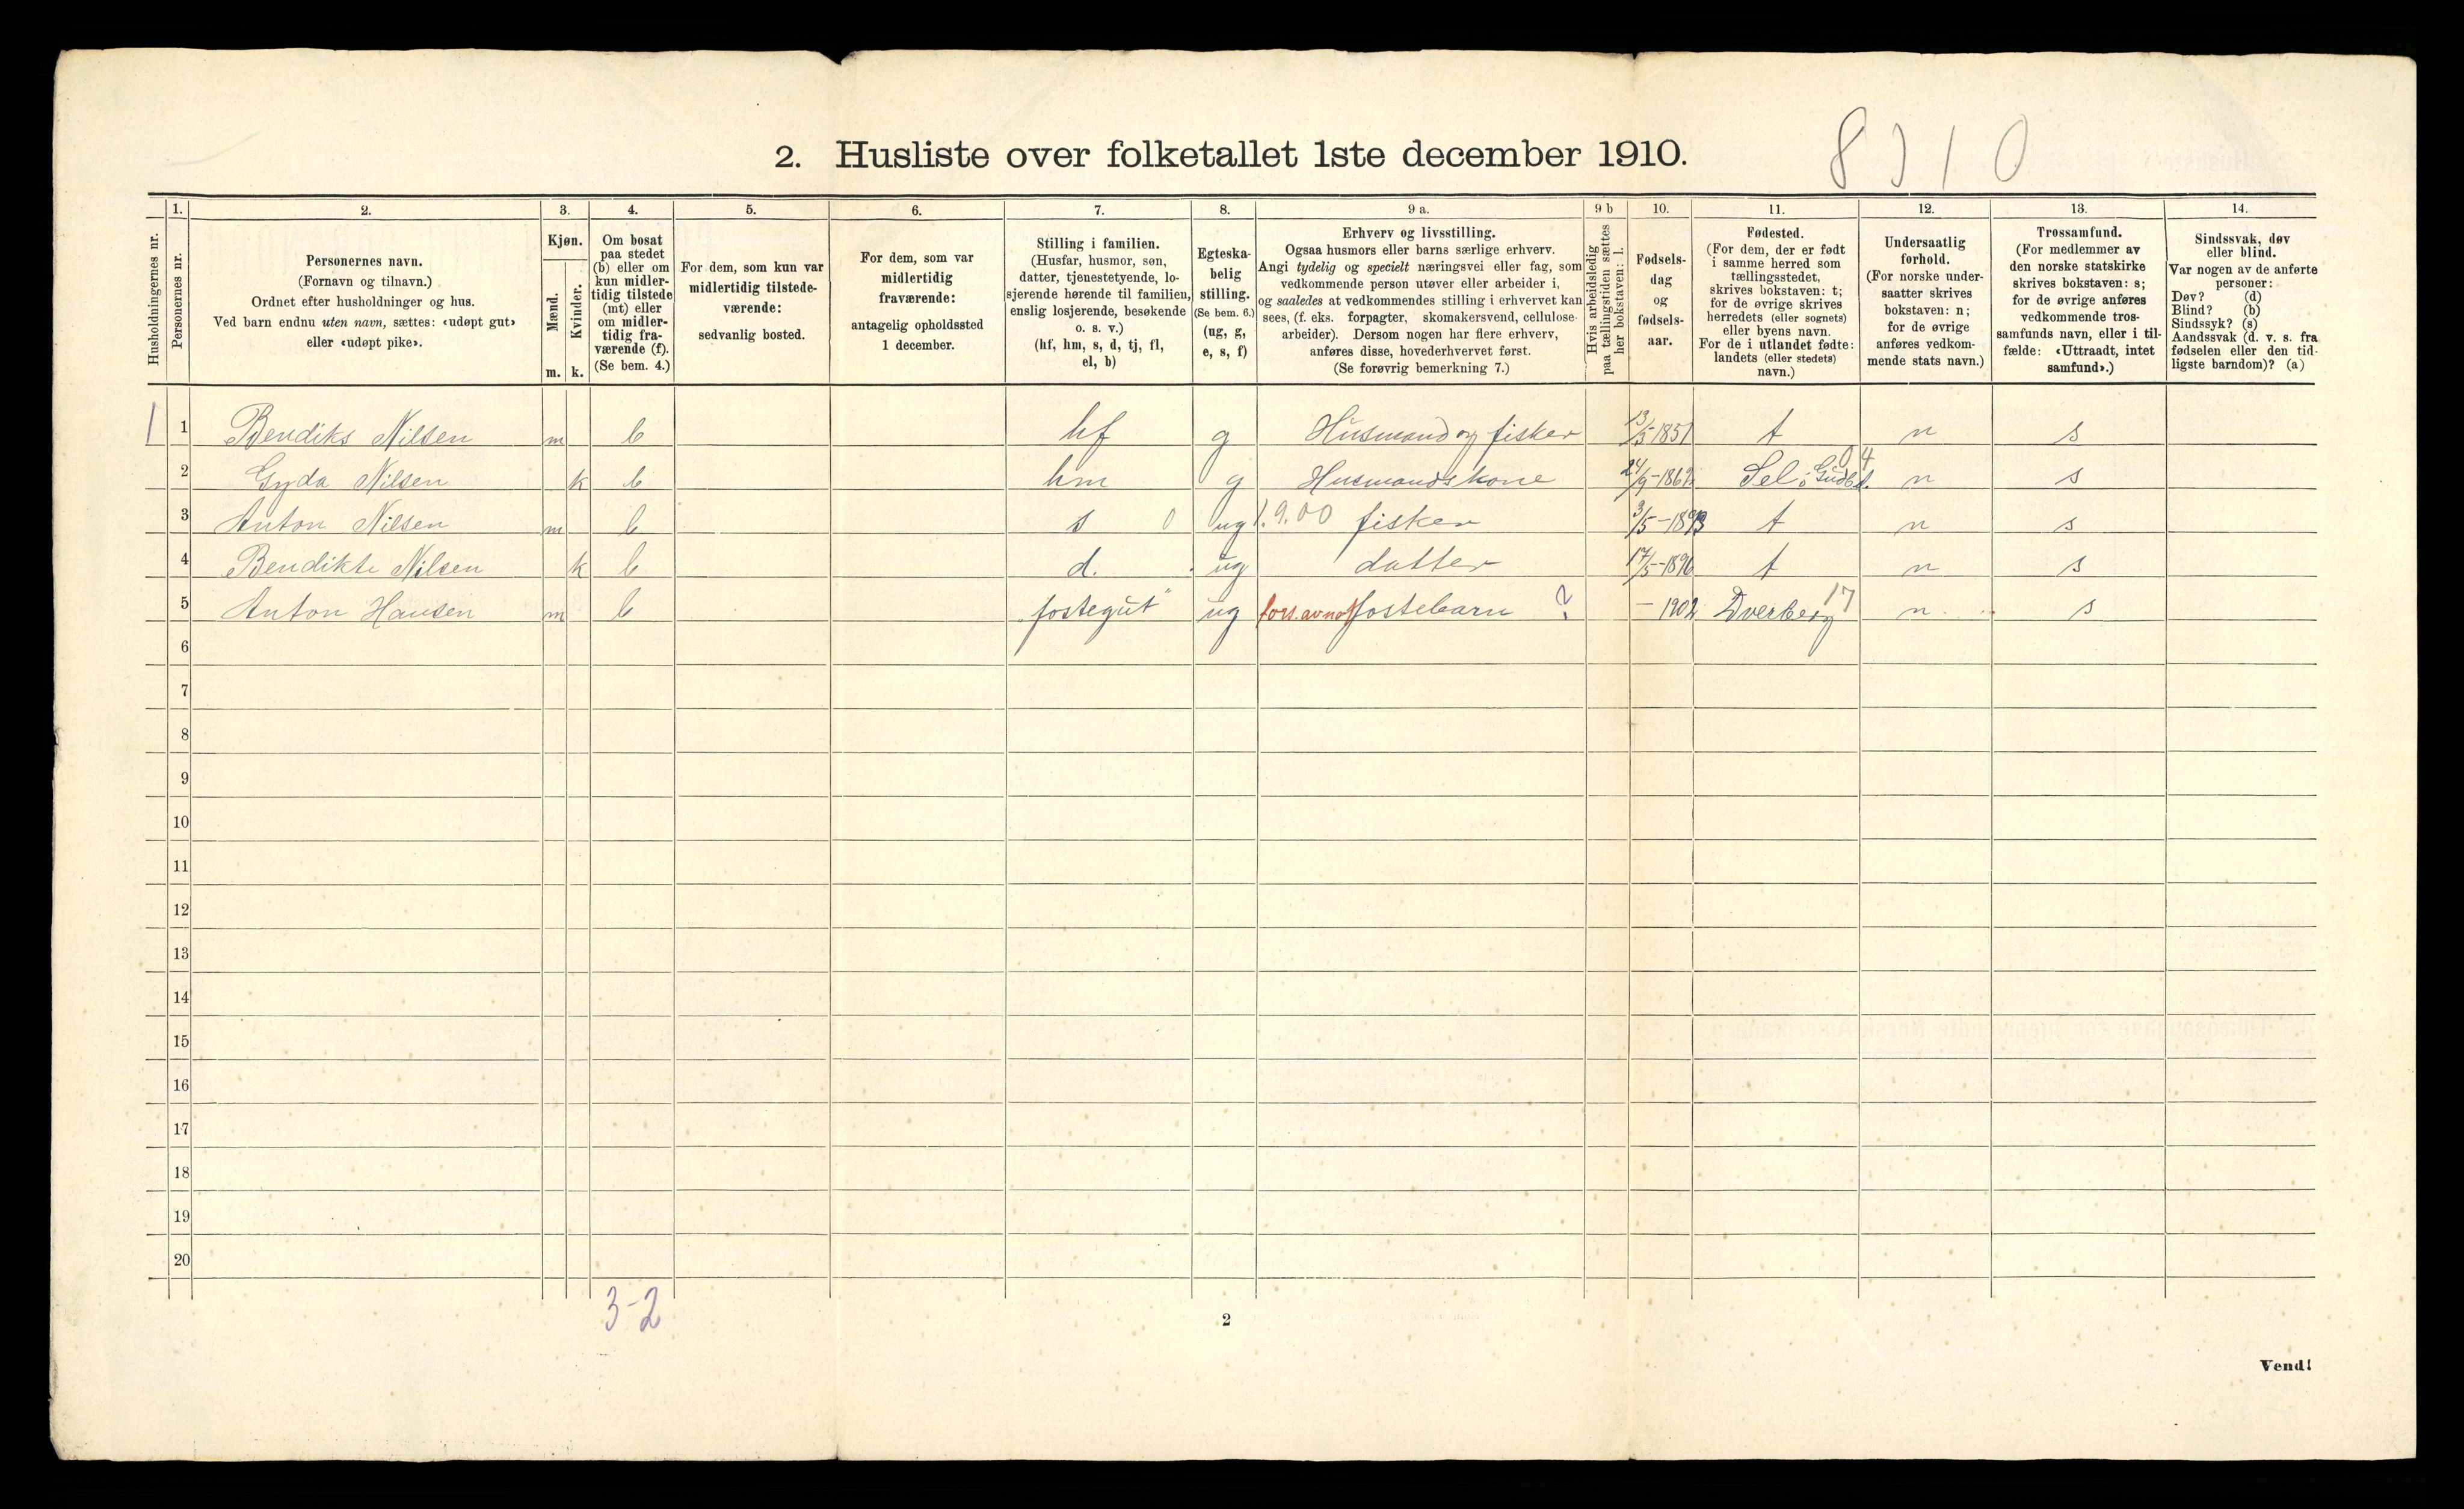 8310
2. Husliste over folketallet 1ste december 1910.
Husholdningernes nr.
1.
Personernes nr.
2.
Personernes navn.
(Fornavn og tilnavn.)
Ordnet efter husholdninger og hus.
Ved barn endnu uten navn, sættes: «udøpt gut»
eller «udøpt pike».
3.
Kjøn.
Mænd.
Kvinder.
m. k.
4.
Om bosat
paa stedet
(b) eller om
kun midler-
tidig tilstede
(mt) eller
om midler-
tidig fra-
værende (f).
(Se bem. 4.)
5.
For dem, som kun var
midlertidig tilstede-
værende:
sedvanlig bosted.
6.
For dem, som var
midlertidig
fraværende:
antagelig opholdssted
1 december.
7.
Stilling i familien.
(Husfar, husmor, søn,
datter, tjenestetyende, lo-
sjerende hørende til familien,
enslig losjerende, besøkende
o. s. v.)
(hf, hm, s, d, tj, fl,
el, b)
8.
Egteska-
belig
stilling.
(Se bem. 6.)
(ug, g,
e, s, f)
9 a.
Erhverv og livsstilling.
Ogsaa husmors eller barns særlige erhverv.
Angi tydelig og specielt næringsvei eller fag, som
vedkommende person utøver eller arbeider i,
og saaledes at vedkommendes stilling i erhvervet kan
sees, (f. eks. forpagter, skomakersvend, cellulose-
arbeider). Dersom nogen har flere erhverv,
anføres disse, hovederhvervet først.
(Se forøvrig bemerkning 7.)
9 b
Hvis arbeidsledig
paa tællingstiden sættes
her bokstaven: l.
10.
Fødsels-
dag
og
fødsels-
aar.
11.
Fødested.
(For dem, der er født
i samme herred som
tællingsstedet,
skrives bokstaven: t;
for de øvrige skrives
herredets (eller sognets)
eller byens navn.
For de i utlandet fødte:
landets (eller stedets)
navn.)
12.
Undersaatlig
forhold.
(For norske under-
saatter skrives
bokstaven: n;
for de øvrige
anføres vedkom-
mende stats navn.)
13.
Trossamfund.
(For medlemmer av
den norske statskirke
skrives bokstaven: s;
for de øvrige anføres
vedkommende tros-
samfunds navn, eller i til-
fælde: «Uttraadt, intet
samfund».)
14.
Sindssvak, døv
eller blind.
Var nogen av de anførte
personer:
Døv? (d)
Blind? (b)
Sindssyk? (s)
Aandssvak (d. v. s. fra
fødselen eller den tid-
ligste barndom)? (a)
1 1 Bendiks Nilsen m b hf g Husmand og fisker 13/5-1851 t n s
04
2 Gyda Nilsen k b hm g Husmandskone 24/9-1862 Sel i Gudbd. n s
3 Anton Nilsen m b s 0 ug 1.9.00 fisker 3/5-1893 t n s
4 Bendikte Nilsen k b d. ug datter 17/5-1896 t n s
17
5 Anton Hansen m b "fostegut" ug fors. av nof fostebarn ? -1902 Dverberg n s
6
7
8
9
10
11
12
13
14
15
16
17
18
19
20
3-2
2
Vend!